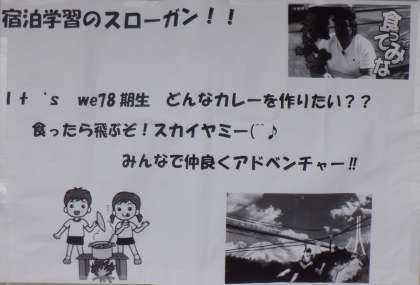 宿泊学習のスローガン!!
食ってみな
It's we78期生 どんなカレーを作りたい??
食ったら飛ぶぞ!スカイヤミー(^^♪
みんなで仲良くアドベンチャー!!